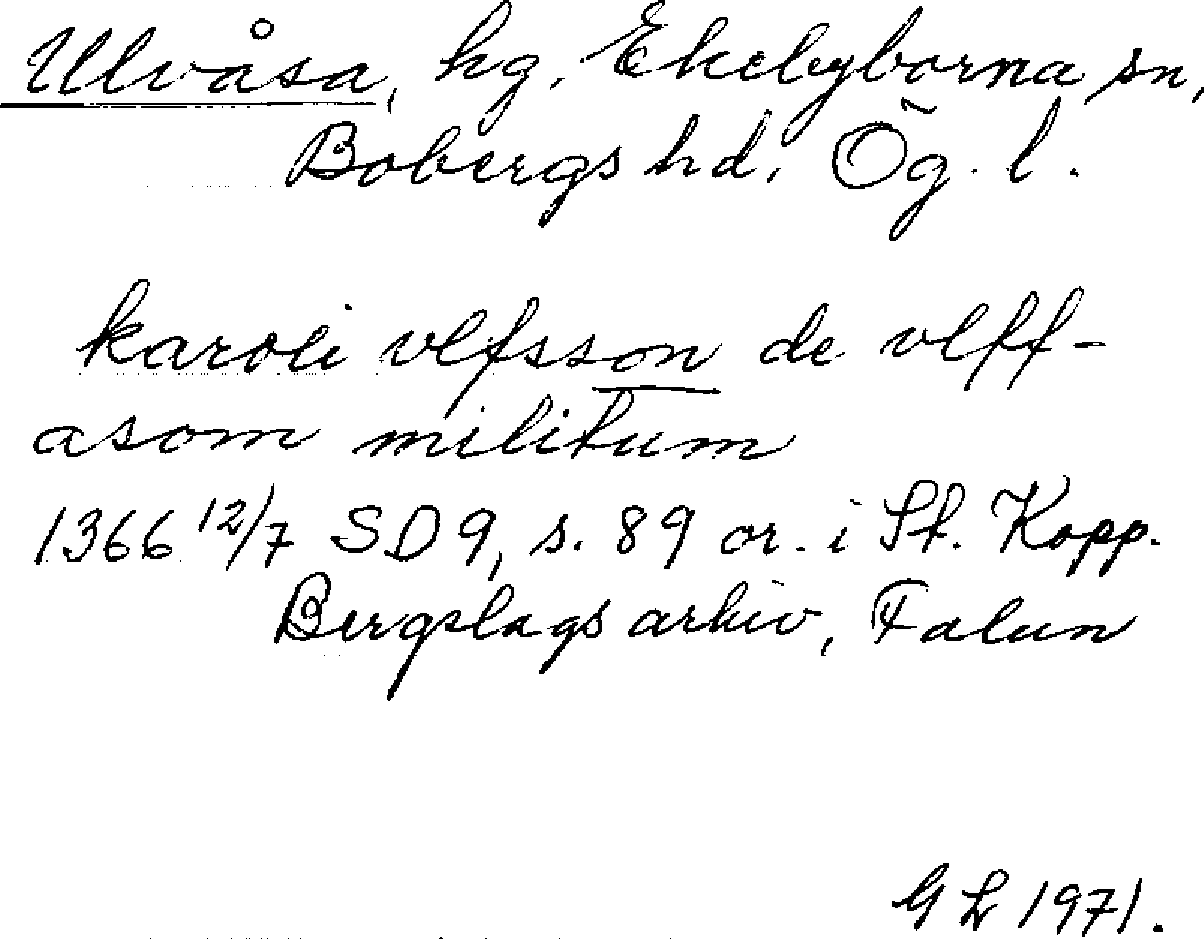 Ulvåsa, hg, Ekebyborna sn,
Bobergs hd, Ög. l.
karoli vlfsson de vlff-
asom militum
1366 12/7 SD 9, s. 89 or. i St. Kopp.
Bergslags arkiv, Falun
GL 1971.